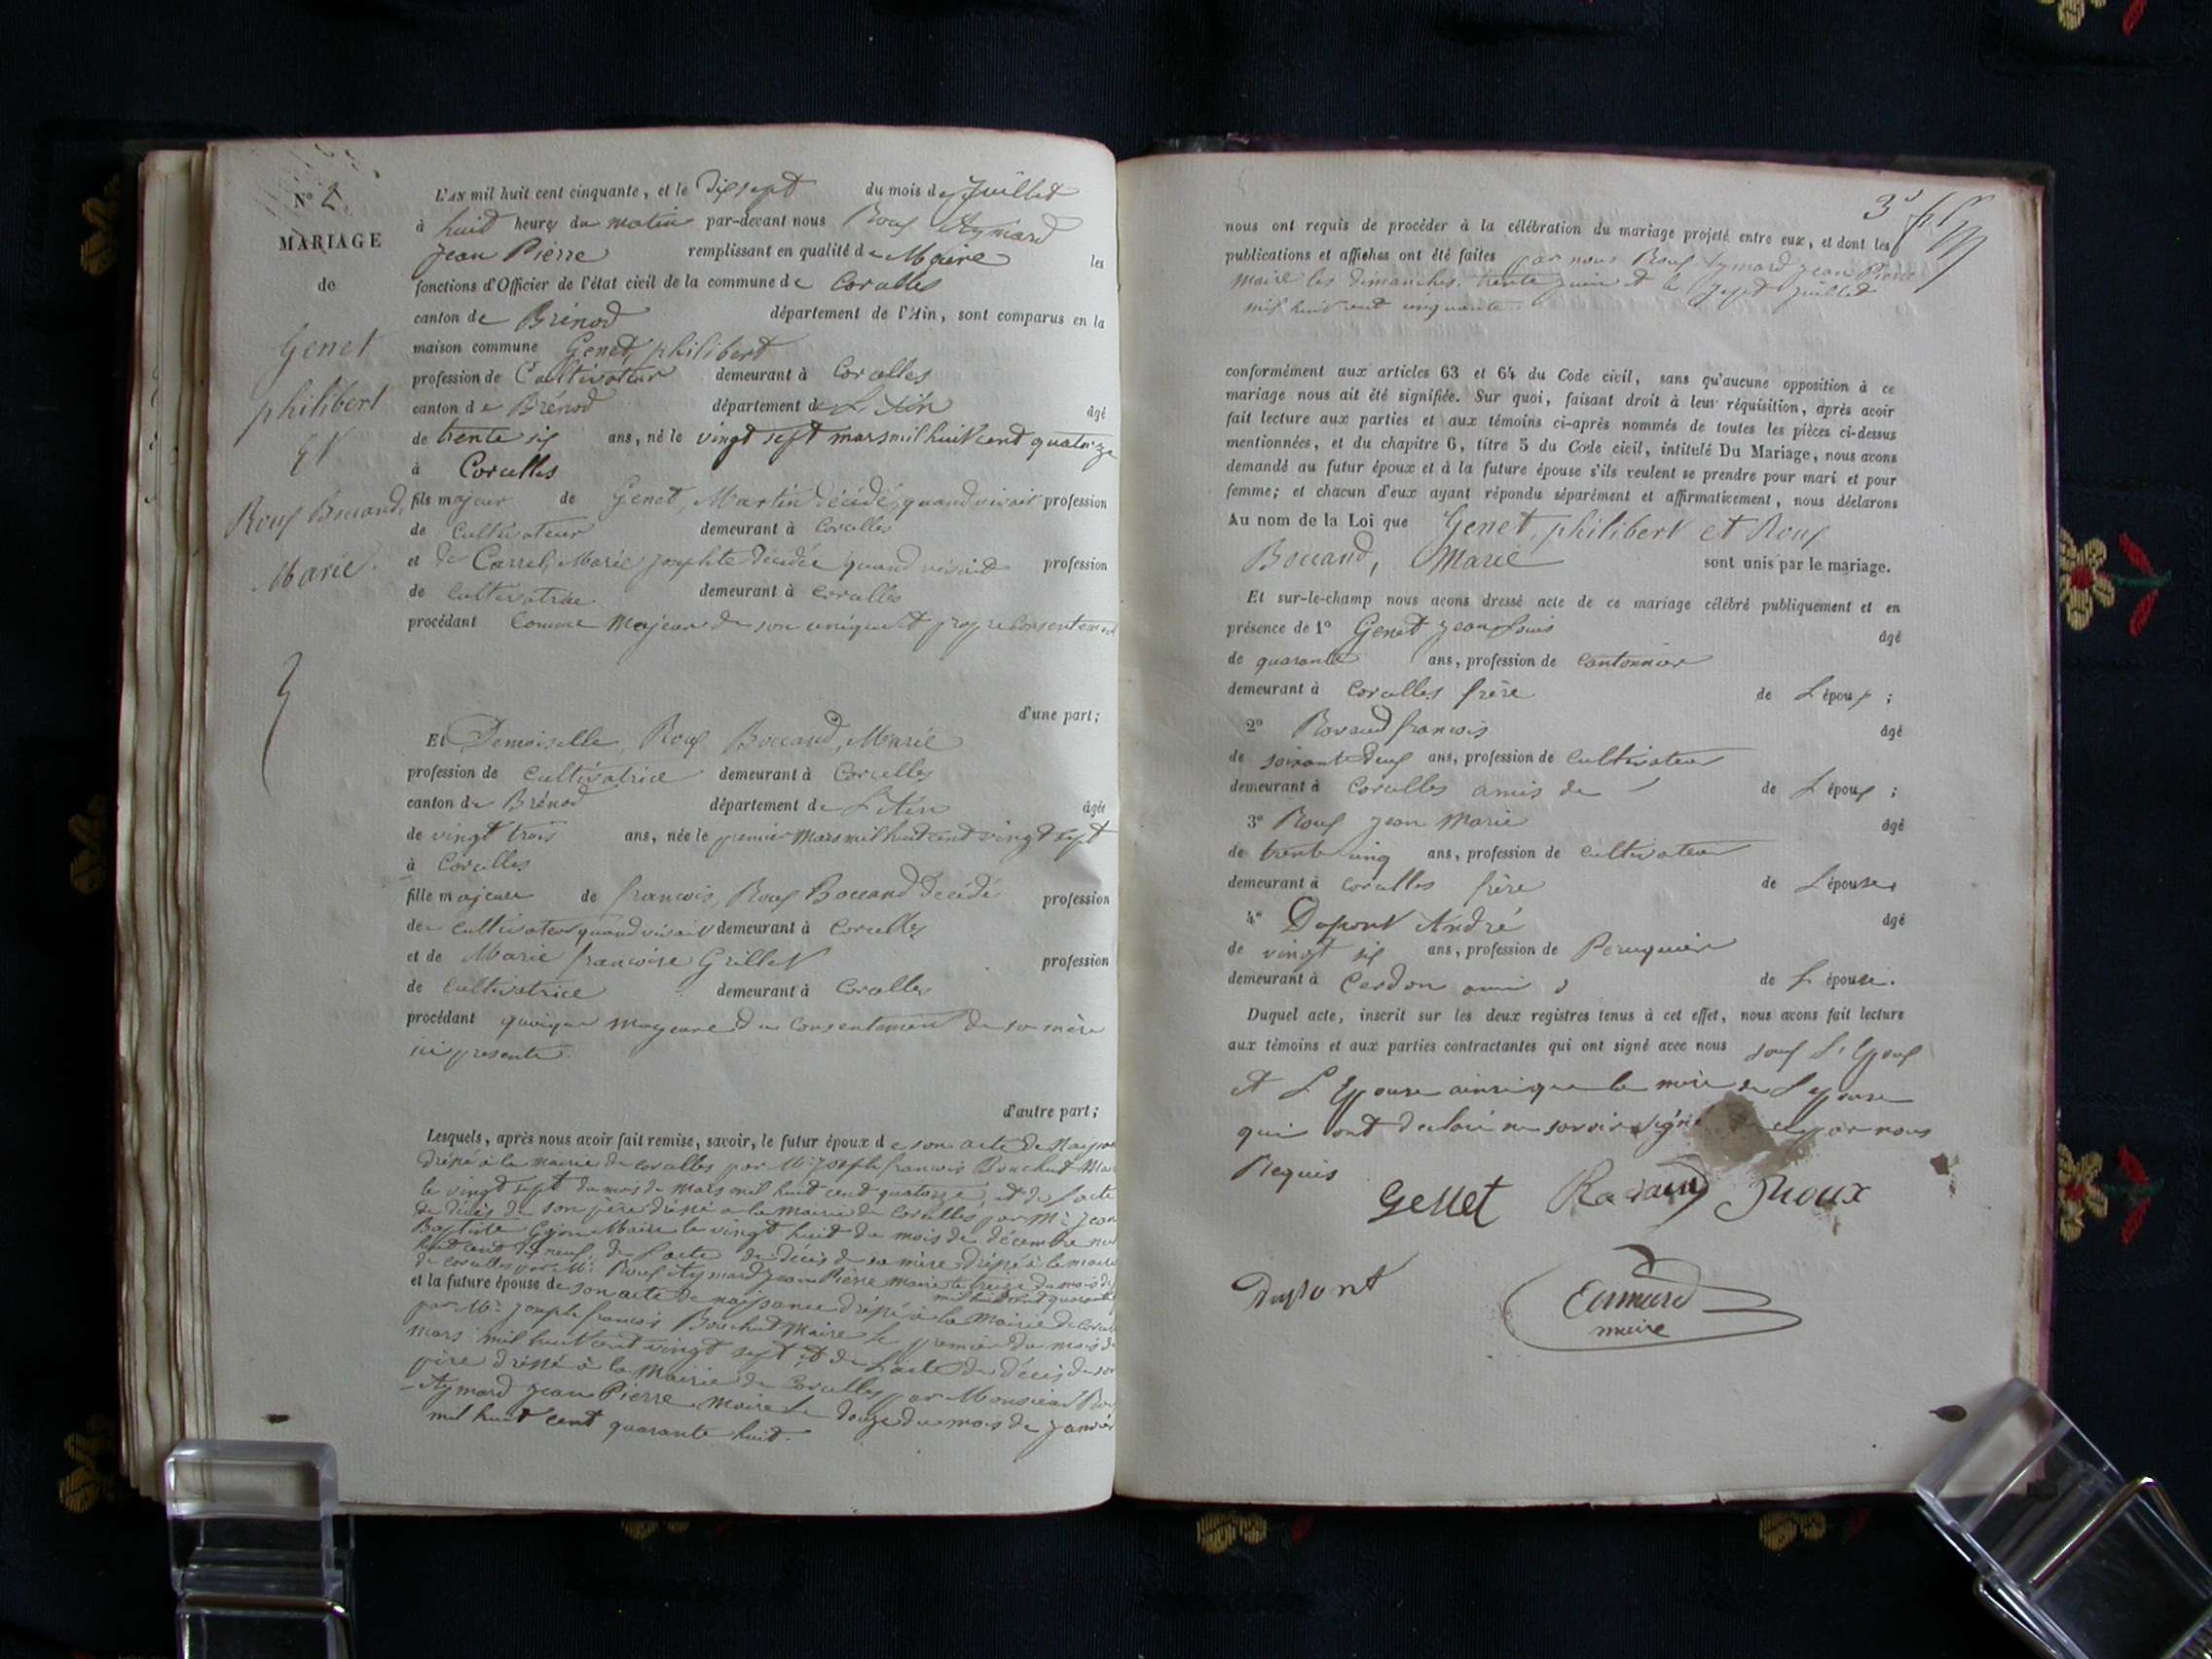 N° 2.
MARIAGE
de
Genet
philibert
et
Roux Boccand,
Marie.
L'AN mil huit cent cinquante, et le Dix sept du mois de Juillet
à huit heures du matin par-devant nous Roux Aymard
Jean Pierre remplissant en qualité de Maire les
fonctions d'Officier de l'état civil de la commune de Corcelles
canton de Brénod département de l'Ain, sont comparus en la
maison commune Genet, philibert
profession de Cultivateur demeurant à Corcelles
canton de Brénod département de L'Ain âgé
de trente six ans, né le vingt sept mars mil huit cent quatorze
à Corcelles
fils majeur de Genet, Martin décédé, quand vivait profession
de cultivateur demeurant à Corcelles
et de Carrel, Marie josephte décédée quand vivait profession
de cultivatrice demeurant à corcelles
procédant comme Majeur de son unique et propre consentement
d'une part;
Et Demoiselle, Roux Boccand, Marie
profession de cultivatrice demeurant à Corcelles
canton de Brénod département de L'Ain âgée
de vingt trois ans, née le premier Mars mil huit cent vingt sept
à Corcelles
fille majeure de francois, Roux Boccand décédé profession
de cultivateur quand vivait demeurant à Corcelles
et de Marie francoise Grillet profession
de cultivatrice demeurant à Corcelles
procédant quoique mageure du consentement de sa mère
ici presente.
d'autre part;
Lesquels, après nous avoir fait remise, savoir, le futur époux de son acte de Naissance
dréssé à la mairie de corcelles par Mr joseph francois Bouchut Maire
le vingt sept du mois de mars mil huit cent quatorze, et de l'acte
de décès de son père dréssé a la mairie de Corcelles par Mr Jean
Baptiste Maire le vingt huit du mois de décembre mil
huit cent dix neuf, de l'acte de décès de sa mère dréssé à la mairie
de corcelles par Mr Roux Aymard Jean Pierre maire le treize du mois de
mil huit cent quarante
et la future épouse de son acte de naissance dréssé à la Mairie de Corcelles
par Mr joseph francois Bouchut Maire le premier du mois de
mars mil huit cent vingt sept et de l'acte de décès de son
père dréssé à la Mairie de Corcelles par Monsieur Roux
Aymard Jean Pierre maire le douze du mois de janvier
mil huit cent quarante huit.
3e
nous ont requis de procéder à la célébration du mariage projeté entre eux, et dont les
publications et affiches ont été faites par nous Roux Aymard Jean Pierre
maire les dimanches, trente juin et le sept juillet
mil huit cent cinquante.
conformément aux articles 63 et 64 du Code civil, sans qu'aucune opposition à ce
mariage nous ait été signifiée. Sur quoi, faisant droit à leur réquisition, après avoir
fait lecture aux parties et aux témoins ci-après nommés de toutes les pièces ci-dessus
mentionnées, et du chapitre 6, titre 5 du Code civil, intitulé Du Mariage, nous avons
demandé au futur époux et à la future épouse s'ils veulent se prendre pour mari et pour
femme; et chacun d'eux ayant répondu séparément et affirmativement, nous déclarons
Au nom de la Loi que Genet, philibert et Roux
Boccand, Marie sont unis par le mariage.
Et sur-le-champ nous avons dressé acte de ce mariage célébré publiquement et en
présence de 1° Genet Jean Louis âgé
de quarante ans, profession de cantonnier
demeurant à Corcelles frère de L'époux;
2° Ravaud francois âgé
de soixante deux ans, profession de cultivateur
demeurant à Corcelles amis de de L'époux;
3° Roux Jean Marie âgé
de trente cinq ans, profession de cultivateur
demeurant à corcelles frère de L'épouse;
4° Dupont André âgé
de vingt six ans, profession de Peruquier
demeurant à Cerdon ami de L'épouse.
Duquel acte, inscrit sur les deux registres tenus à cet effet, nous avons fait lecture
aux témoins et aux parties contractantes qui ont signé avec nous sauf L'Epoux
et L'Epouse ainsi que la mère de L'epouse
qui ont declaré ne savoir signé de ce par nous
Requis
Genet Ravaud Jroux
Dupont
Eymard
maire